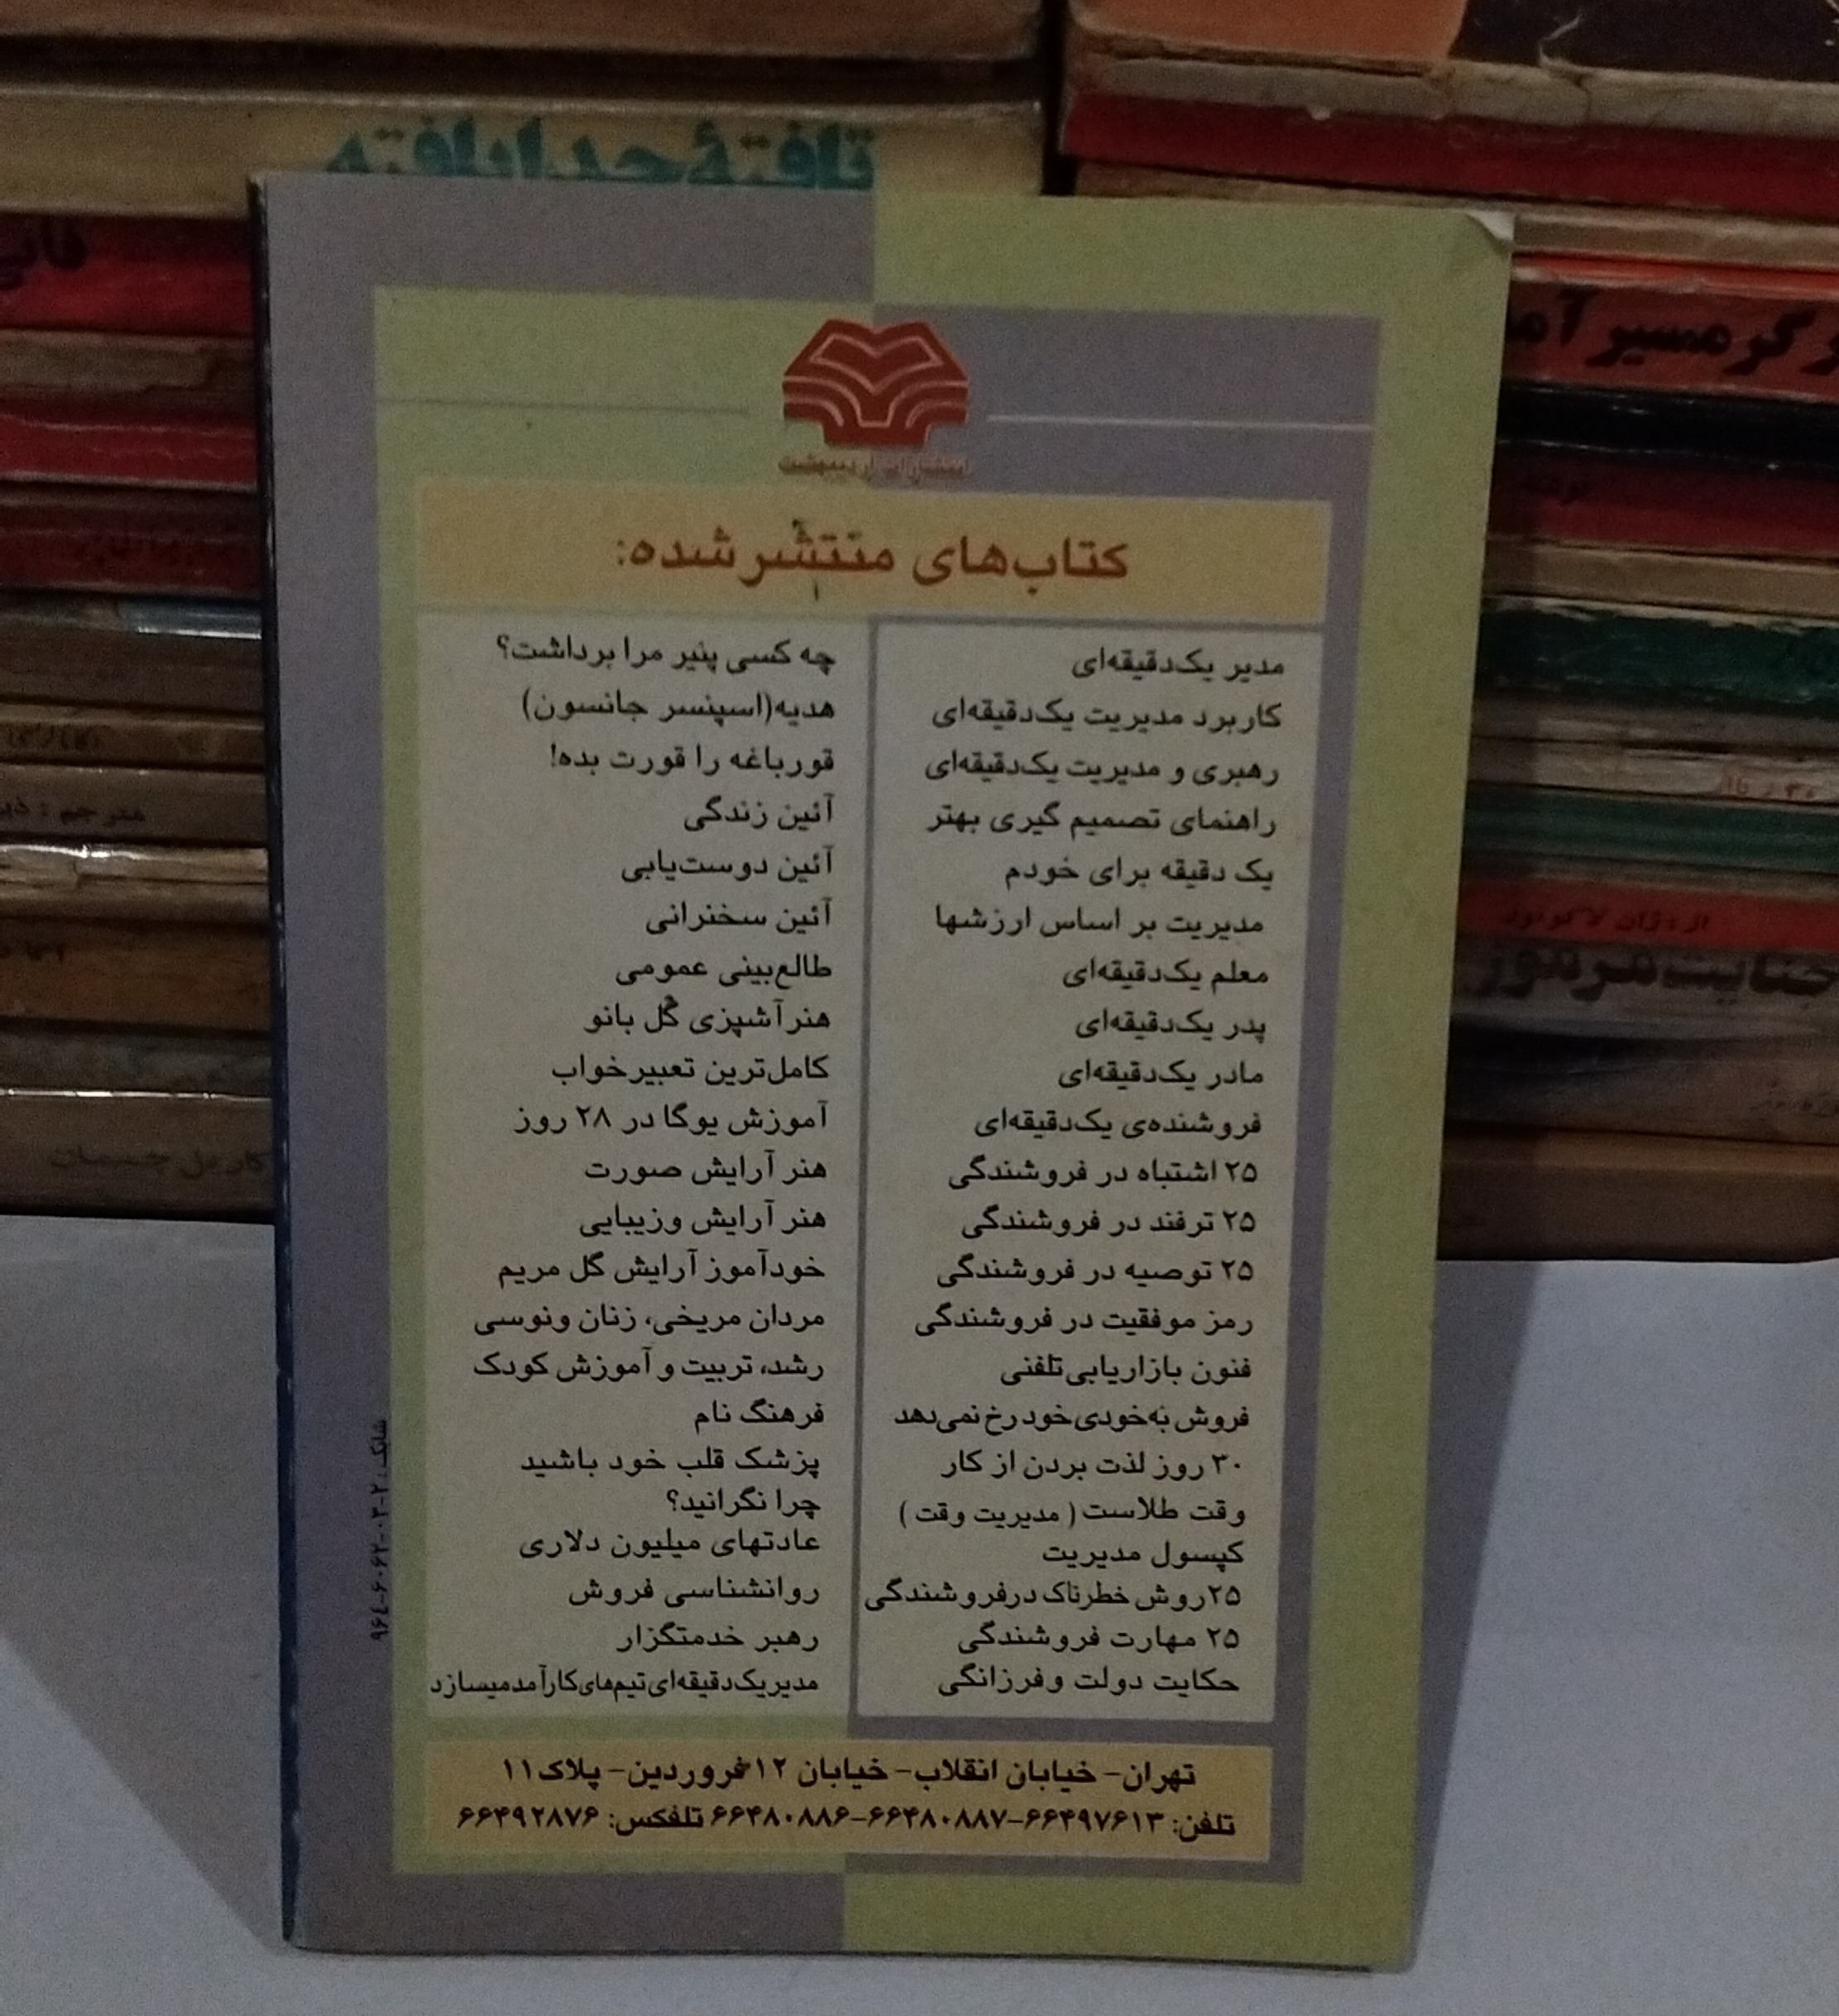 تافتهٔ جدا بافته
انتشارات اردیبهشت
کتاب‌های منتشر شده:
مدیر یک‌دقیقه‌ای
کاربرد مدیریت یک‌دقیقه‌ای
رهبری و مدیریت یک‌دقیقه‌ای
راهنمای تصمیم گیری بهتر
یک دقیقه برای خودم
مدیریت بر اساس ارزشها
معلم یک‌دقیقه‌ای
پدر یک‌دقیقه‌ای
مادر یک‌دقیقه‌ای
فروشنده‌ی یک‌دقیقه‌ای
۲۵ اشتباه در فروشندگی
۲۵ ترفند در فروشندگی
۲۵ توصیه در فروشندگی
رمز موفقیت در فروشندگی
فنون بازاریابی تلفنی
فروش به‌خودی‌خود رخ نمی‌دهد
۳۰ روز لذت بردن از کار
وقت طلاست ( مدیریت وقت )
کپسول مدیریت
۲۵روش خطرناک درفروشندگی
۲۵ مهارت فروشندگی
حکایت دولت وفرزانگی
چه کسی پنیر مرا برداشت؟
هدیه(اسپنسر جانسون)
قورباغه را قورت بده!
آئین زندگی
آئین دوست‌یابی
آئین سخنرانی
طالع‌بینی عمومی
هنرآشپزی گل بانو
کامل‌ترین تعبیرخواب
آموزش یوگا در ۲۸ روز
هنر آرایش صورت
هنر آرایش وزیبایی
خودآموز آرایش گل مریم
مردان مریخی، زنان ونوسی
رشد، تربیت و آموزش کودک
فرهنگ نام
پزشک قلب خود باشید
چرا نگرانید؟
عادتهای میلیون دلاری
روانشناسی فروش
رهبر خدمتگزار
مدیریک‌دقیقه‌ای‌تیم‌های‌کارآمدمیسازد
تهران- خیابان انقلاب- خیابان ۱۲فروردین- پلاک۱۱
تلفن: ۶۶۴۹۷۶۱۳-۶۶۴۸۰۸۸۷-۶۶۴۸۰۸۸۶ تلفکس: ۶۶۴۹۲۸۷۶
شابک: ۲-۰۳-۶۰۶۲-۹۶۴
گرمسیر
از: ژان لاکوتور
جنایت مرموز